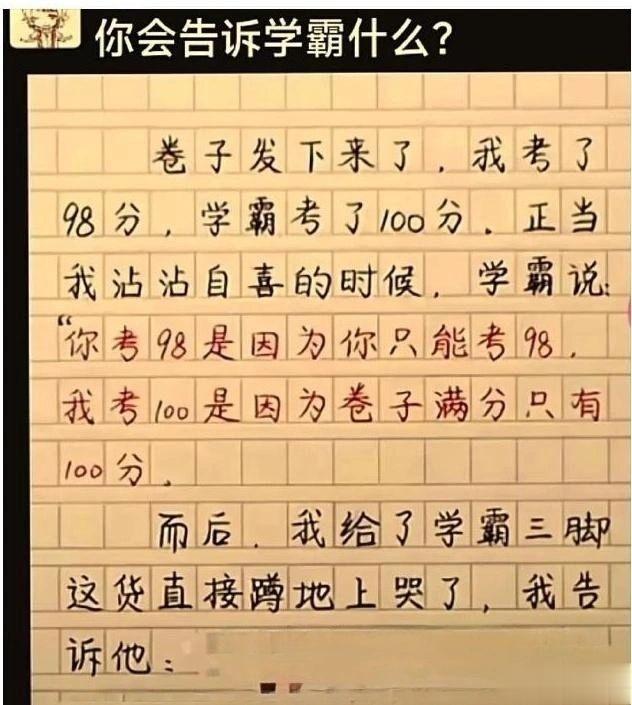 你会告诉学霸什么？
卷子发下来了，我考了
98分，学霸考了100分．正当
我沾沾自喜的时候，学霸说：
“你考98是因为你只能考98．
我考100是因为卷子满分只有
100分．
而后．我给了学霸三脚
这货直接蹲地上哭了，我告
诉他：